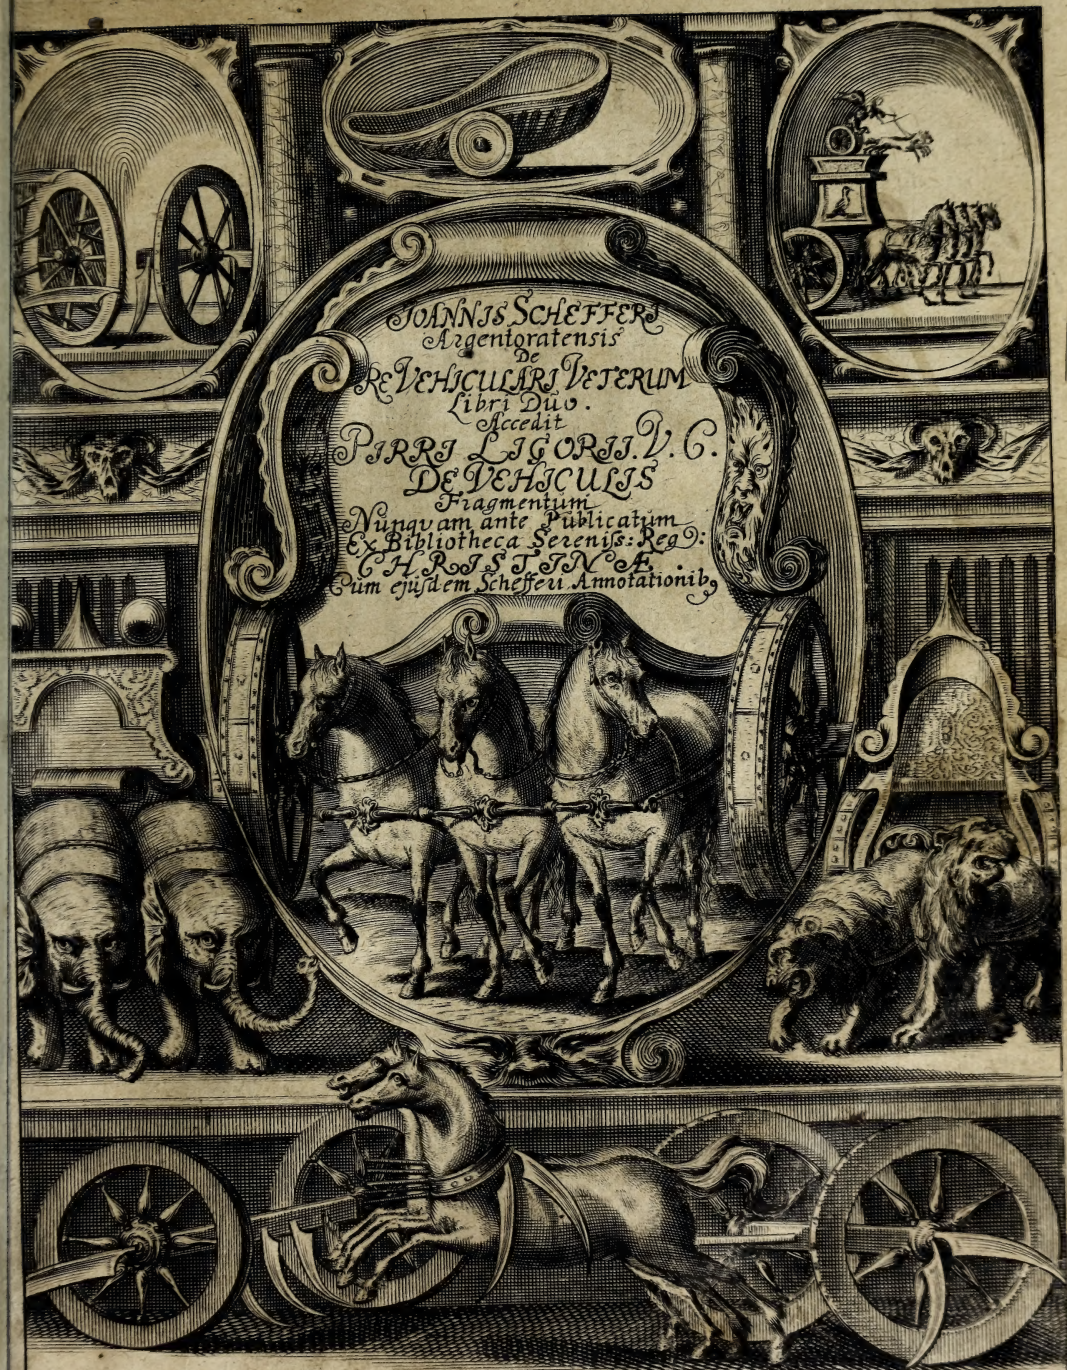 JOANNIS SCHEFFERI
Argentoratensis
De
RE VEHICULARI VETERUM
Libri Duo.
Accedit
PIRRI LIGORII. V. C.
DE VEHICULIS
Fragmentum
Nunquam ante Publicatum
Ex Bibliotheca Sereniss: Reg:
CHRISTINÆ.
Cum ejusdem Schefferi Annotationibꝰ